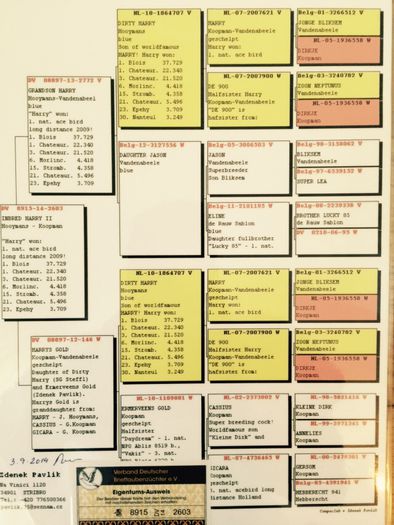 DV 8915-14-2603
INBRED HARRY II
Hooymans - Koopman
"Harry" won:
1. nat. ace bird
long distance 2009!
1. Blois 37.729
1. Chateaur. 22.340
3. Chateaur. 21.520
6. Morlinc. 4.418
15. Stromb. 4.458
21. Chateaur. 5.496
23. Epehy 3.709
DV 08897-13-2772 V
GRANDSON HARRY
Hooymans-Vandenabeel
blue
"Harry" won:
1. nat. ace bird
long distance 2009!
1. Blois 37.729
1. Chateaur. 22.340
3. Chateaur. 21.520
6. Morlinc. 4.418
15. Stromb.
21. Chateaur. 5.496
23. Epehy 3.709
DV 08897-12-146 W
HARRYS GOLD
Koopman-Vandenabeele
geschelpt
Daughter of Dirty
Harry (SG Steffl)
and Ermerveens Gold
(Idenek Pavlik).
Harrys Gold is
granddaughter from:
HARRY - J. Hooymans,
CASSIUS - G.Koopman
GICARA - G. Koopman
NL-10-1864707 V
DIRTY HARRY
Hooymans
blue
Son of worldfamous
HARRY! Harry won:
1. Blois 37.729
1. Chateaur. 22.340
3. Chateaur. 21.520
6. Morlinc. 4.418
15. Stromb. 4.358
21. Chateaur. 5.496
23. Epehy 3.709
30. Nanteul 3.249
Belg-12-3127556 W
DAUGHTER JASON
Vandenabeele
blue
NL-10-1864707 V
DIRTY HARRY
Hooymans
blue
Son of worldfamous
HARRY! Harry won:
1. Blois 37.729
1. Chateaur. 22.340
3. Chateaur. 21.520
6. Morlinc. 4.418
15. Stromb. 4.358
21. Chateaur. 5.496
23. Epehy 3.709
30. Nanteul 3.249
ERMERVEENS GOLD
Koopman
geschelpt
Halfsister to
"Daydream" - 1. nat.
NPO Ablis 8519 b.,
NL-07-2007621 V
HARRY
Koopman-Vandenabeele
geschelpt
Harry won:
1. nat. ace bird
NL-07-2007900 W
DE 900
Halfsister Harry
Koopman-Vandenabeele
"DE 900" is
hafsister from:
Belg-05-3006503 V
JASON
Vandenabeele
Superbreeder
Son Bliksem
Belg-11-2101185 W
ELINE
de Rauw Sablon
blue
Daughter fullbrother
"Lucky 85" - 1. nat.
NL-07-2007621 V
HARRY
Koopman-Vandenabeele
geschelpt
Harry won:
1. nat. ace bird
NL-07-2007900 W
DE 900
Halfsister Harry
Koopman-Vandenabeele
"DE 900" is
hafsister from:
NL-02-2373002 V
CASSIUS
Koopman
Super breeding cock!
Worldfamous son
"Kleine Dirk" and
Koopman
gescheipt
1. nat. acebird long
distance Holland
Belg-01-3266512 V
JONGE BLIKSEM
Vandenabeele
NL-05-1936558 W
DIRKJE
Koopman
Belg-03-3240782 V
ZOON NEPTUNUS
Vandenabeele
NL-05-1936558 W
DIRKJE
Koopman
Belg-98-3158062 V
BLIKSEM
Vandenabeele
Belg-97-6539152 W
SUPER LEA
Belg-08-2239238 V
BROTHER LUCKY 85
de Rauw Sablon
Belg-01-3266512 V
JONGE BLIKSEM
Vandenabeele
NL-05-1936558 W
DIRKJE
Koopman
Belg-03-3240782 V
ZOON NEPTUNUS
Vandenabeele
NL-05-1936558 W
DIRKJE
Koopman
KLEINE DIRK
Koopman
ANNELIES
Koopman
GERSOM
Koopman
HEBBERECHT 941
Hebberecht
3.9.2014
Zdenek Pavlik
Na Vinici 1120
34901 STRIBRO
Verband Deutscher
Brieftaubenzüchter e.V.
Eigentums-Ausweis
8915 2603